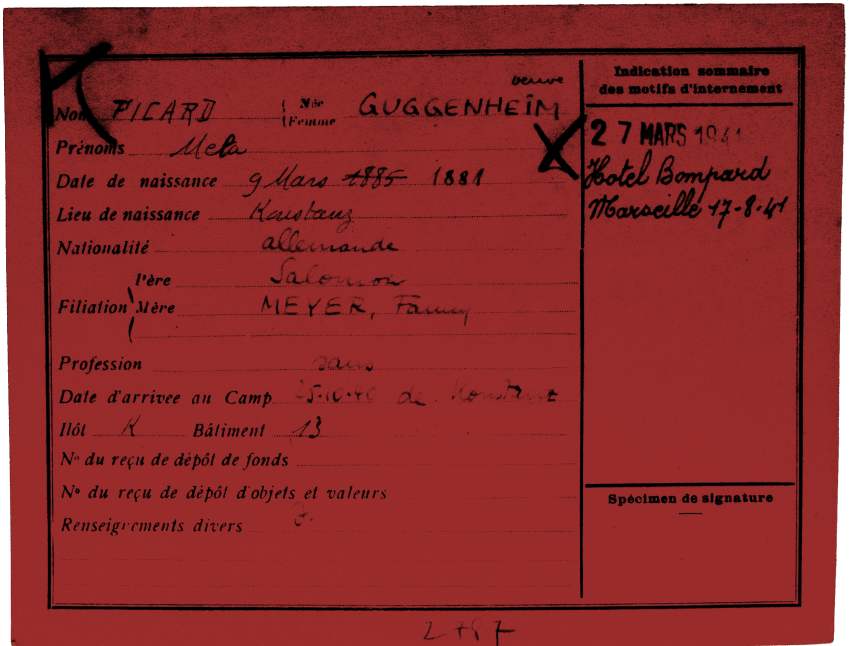 veuve
Nom PICARD Née GUGGENHEIM
Femme
Prénoms Meta
Date de naissance 9 Mars 1885 1881
Lieu de naissance Konstanz
Nationalité allemande
Père Salomon
Filiation Mère MEYER, Fanny
Profession sans
Date d'arrivee au Camp 25-10-40 de Konstanz
Ilôt K Bâtiment 13
Nº du reçu de dépôt de fonds
Nº du reçu de dépôt d'objets et valeurs
Renseignements divers
Indication sommaire
des motifs d'internement
27 MARS 1941
Hotel Bompard
Marseille 17-8-41
Spécimen de signature